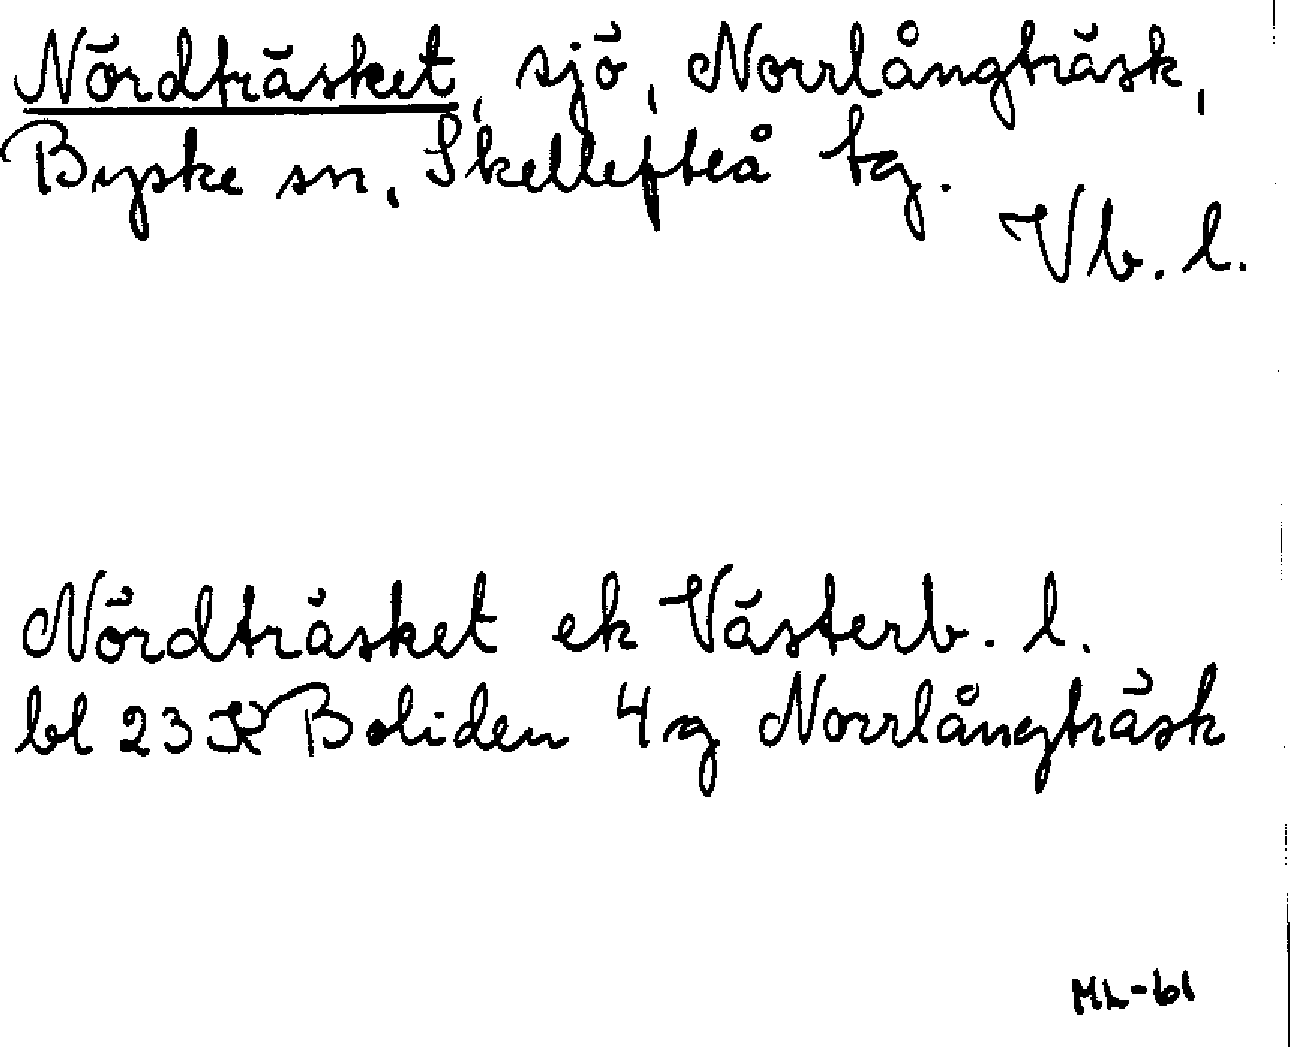 Nördträsket, sjö, Norrlångträsk,
Byske sn, Skellefteå tg.
Vb. l.
Nördträsket ek Västerb. l.
bl 23 K Boliden 4g Norrlångträsk
ML-61